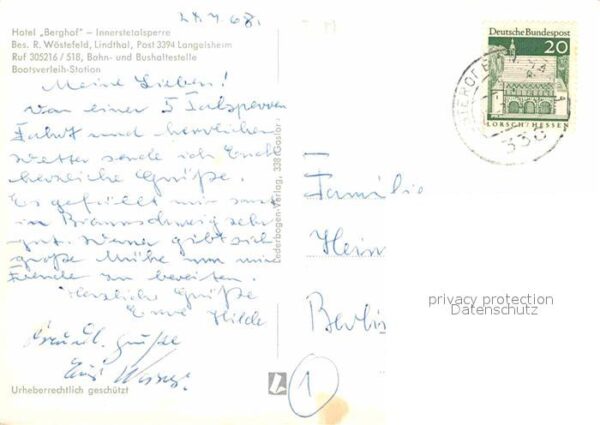 28.4.68.
Hotel „Berghof" – Innerstetalsperre
Bes. R. Wöstefeld, Lindthal, Post 3394 Langelsheim
Ruf 305216 / 518, Bahn- und Bushaltestelle
Bootsverleih-Station
Meine Lieben!
Von einer 5 Talsperren
Fahrt und herrlichem
Wetter sende ich Euch
herzliche Grüße.
Es gefällt mir
in Braunschweig sehr
gut. gibt sich
große Mühe um mir
Freude zu bereiten.
Herzliche Grüße
Eure Hilde
Freundl. Grüße
Urheberrechtlich geschützt
Lederbogen-Verlag, 338 Goslar
Deutsche Bundespost
20
LORSCH/HESSEN
330
Familie
Hein
Berlin
1
privacy protection
Datenschutz